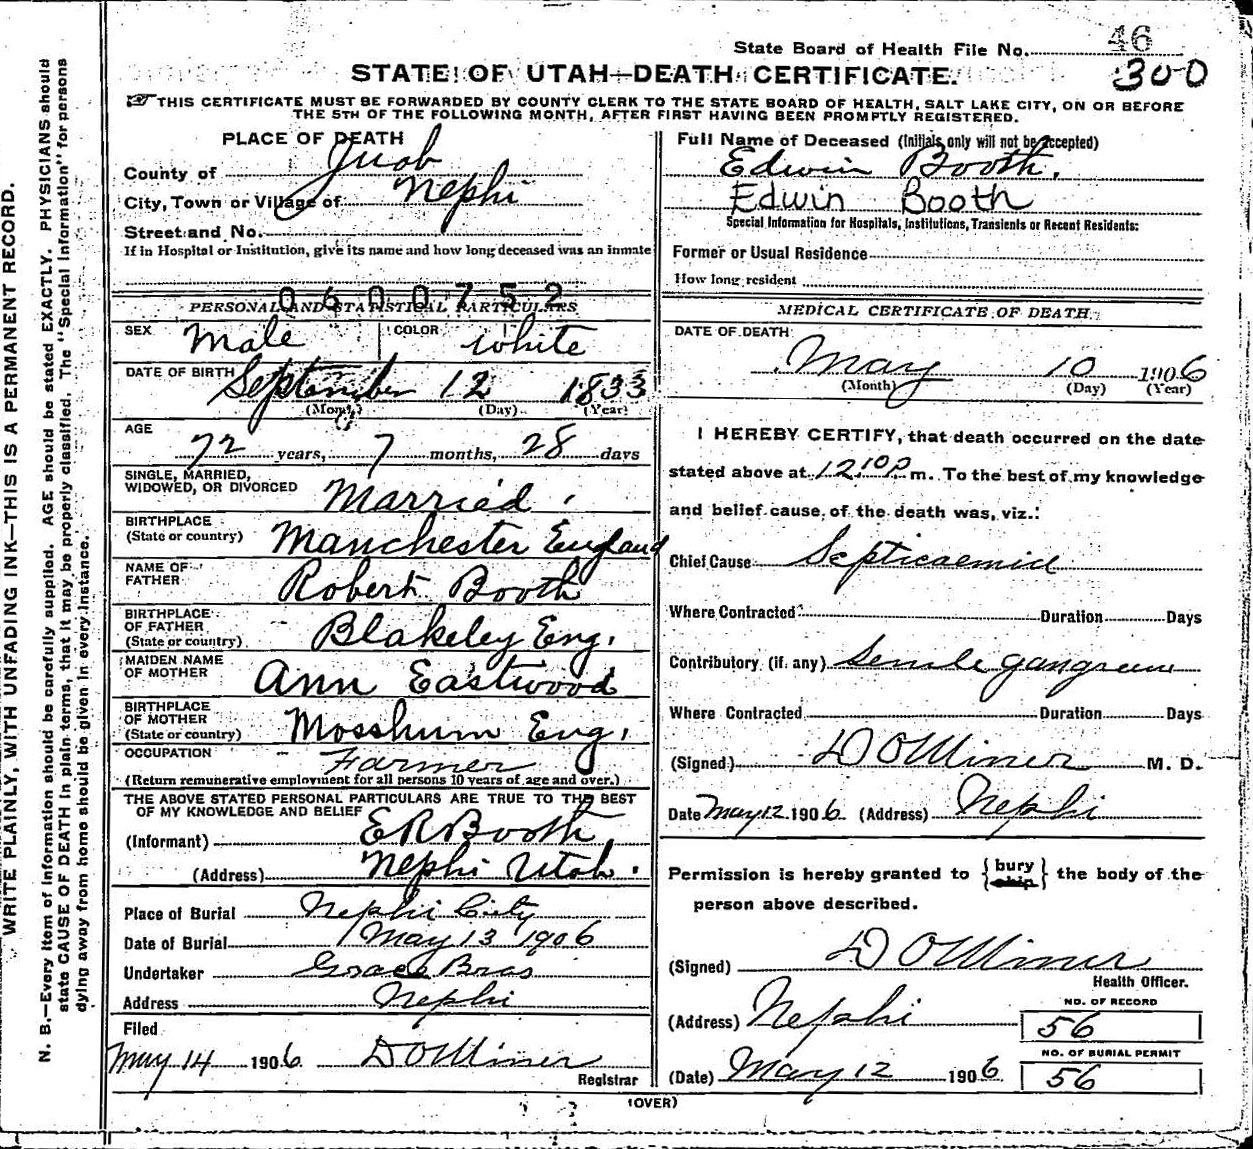 State Board of Health File No. 46
300
STATE OF UTAH—DEATH CERTIFICATE.
☞ THIS CERTIFICATE MUST BE FORWARDED BY COUNTY CLERK TO THE STATE BOARD OF HEALTH, SALT LAKE CITY, ON OR BEFORE
THE 5TH OF THE FOLLOWING MONTH, AFTER FIRST HAVING BEEN PROMPTLY REGISTERED.
WRITE PLAINLY, WITH UNFADING INK—THIS IS A PERMANENT RECORD.
N. B.—Every item of information should be carefully supplied. AGE should be stated EXACTLY. PHYSICIANS should
state CAUSE OF DEATH in plain terms, that it may be properly classified. The "Special Information" for persons
dying away from home should be given in every instance.
PLACE OF DEATH
County of Juab
City, Town or Village of Nephi
Street and No.
If in Hospital or Institution, give its name and how long deceased was an inmate
0600752
PERSONAL AND STATISTICAL PARTICULARS
SEX Male COLOR White
DATE OF BIRTH September 12 1833
(Month) (Day) (Year)
AGE
72 years, 7 months, 28 days
SINGLE, MARRIED,
WIDOWED, OR DIVORCED Married
BIRTHPLACE
(State or country) Manchester England
NAME OF
FATHER Robert Booth
BIRTHPLACE
OF FATHER
(State or country) Blakeley Eng.
MAIDEN NAME
OF MOTHER Ann Eastwood
BIRTHPLACE
OF MOTHER
(State or country) Mosshum Eng.
OCCUPATION Farmer
(Return remunerative employment for all persons 10 years of age and over.)
THE ABOVE STATED PERSONAL PARTICULARS ARE TRUE TO THE BEST
OF MY KNOWLEDGE AND BELIEF
(Informant) E R Booth
(Address) Nephi Utah.
Place of Burial Nephi City
Date of Burial May 13 1906
Undertaker Grace Bros
Address Nephi
Filed
May 14 1906 D O Miner
Registrar
Full Name of Deceased (Initials only will not be accepted)
Edwin Booth.
Edwin Booth
Special Information for Hospitals, Institutions, Transients or Recent Residents:
Former or Usual Residence
How long resident
MEDICAL CERTIFICATE OF DEATH
DATE OF DEATH
May 10 1906
(Month) (Day) (Year)
I HEREBY CERTIFY, that death occurred on the date
stated above at 12 10 P m. To the best of my knowledge
and belief cause of the death was, viz.:
Chief Cause Septicaemia
Where Contracted Duration Days
Contributory (if any) Senile gangrene
Where Contracted Duration Days
(Signed) D O Miner M. D.
Date May 12 1906. (Address) Nephi
Permission is hereby granted to {bury ship} the body of the
person above described.
(Signed) D O Miner
Health Officer.
(Address) Nephi
NO. OF RECORD
56
NO. OF BURIAL PERMIT
(Date) May 12 1906 56
(OVER)